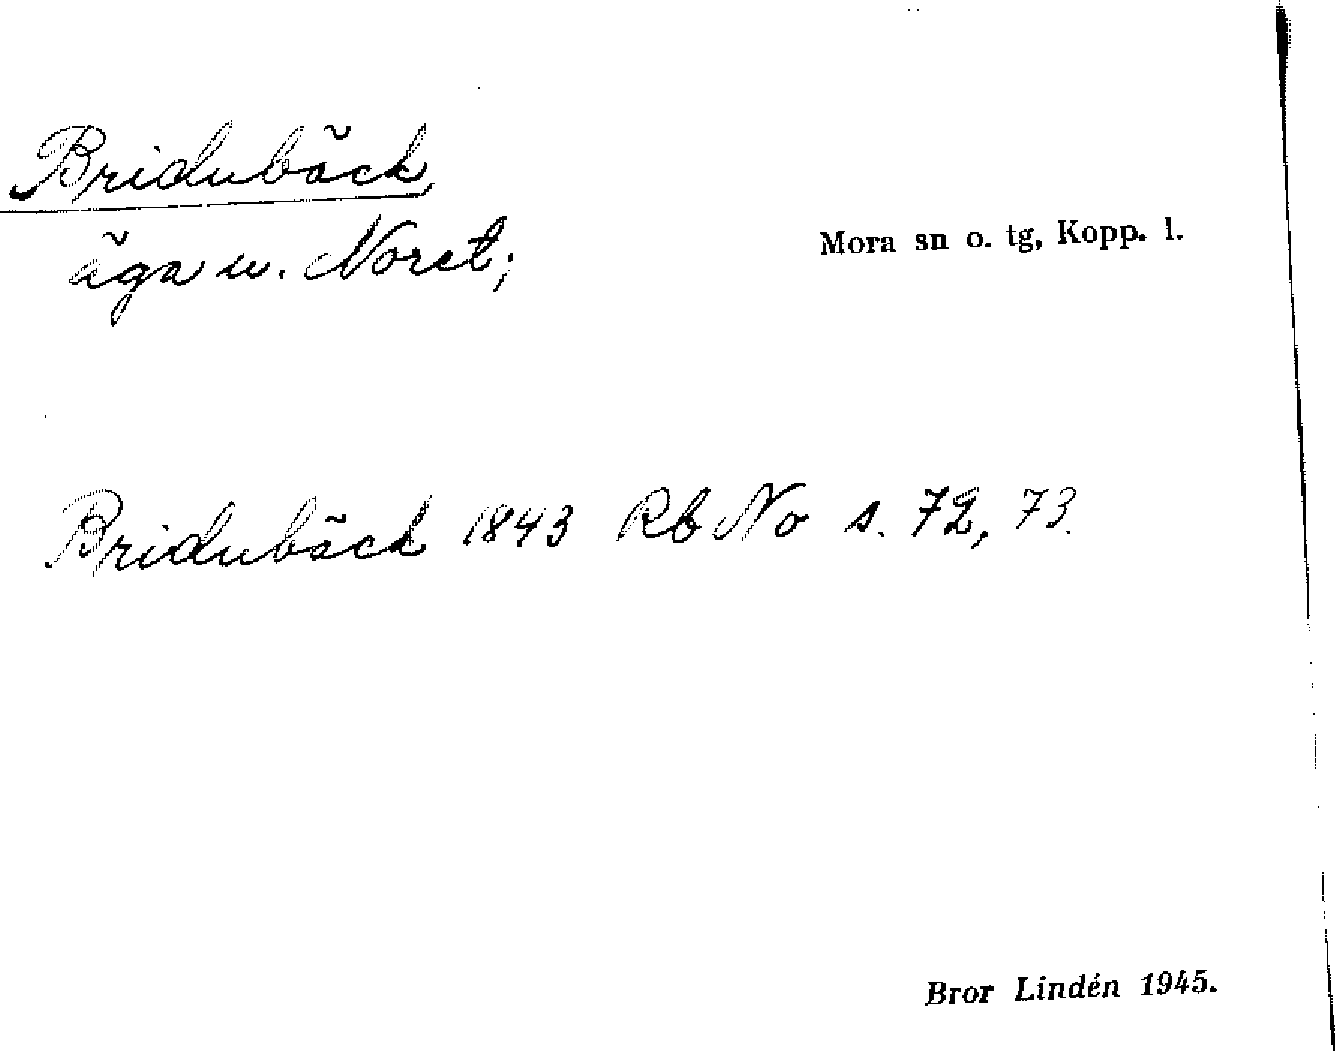 Bridubäck
äga u. Noret;
Mora sn o. tg, Kopp. l.
Bridubäck 1843 Rb No s. 72, 73.
Bror Lindén 1945.